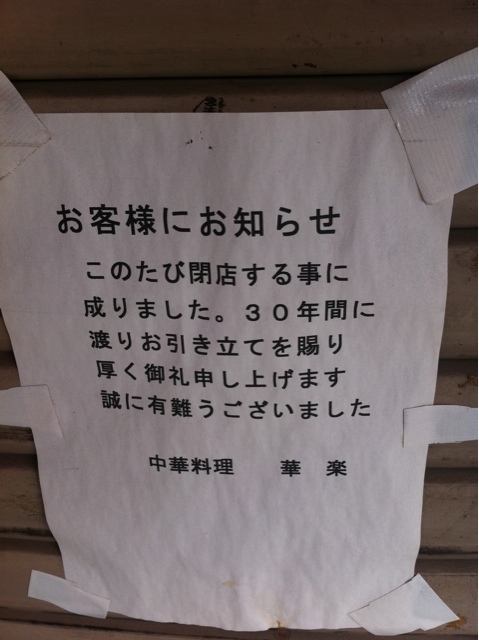 お客様にお知らせ
このたび閉店する事に
成りました。３０年間に
渡りお引き立てを賜り
厚く御礼申し上げます
誠に有難うございました
中華料理　　華　楽